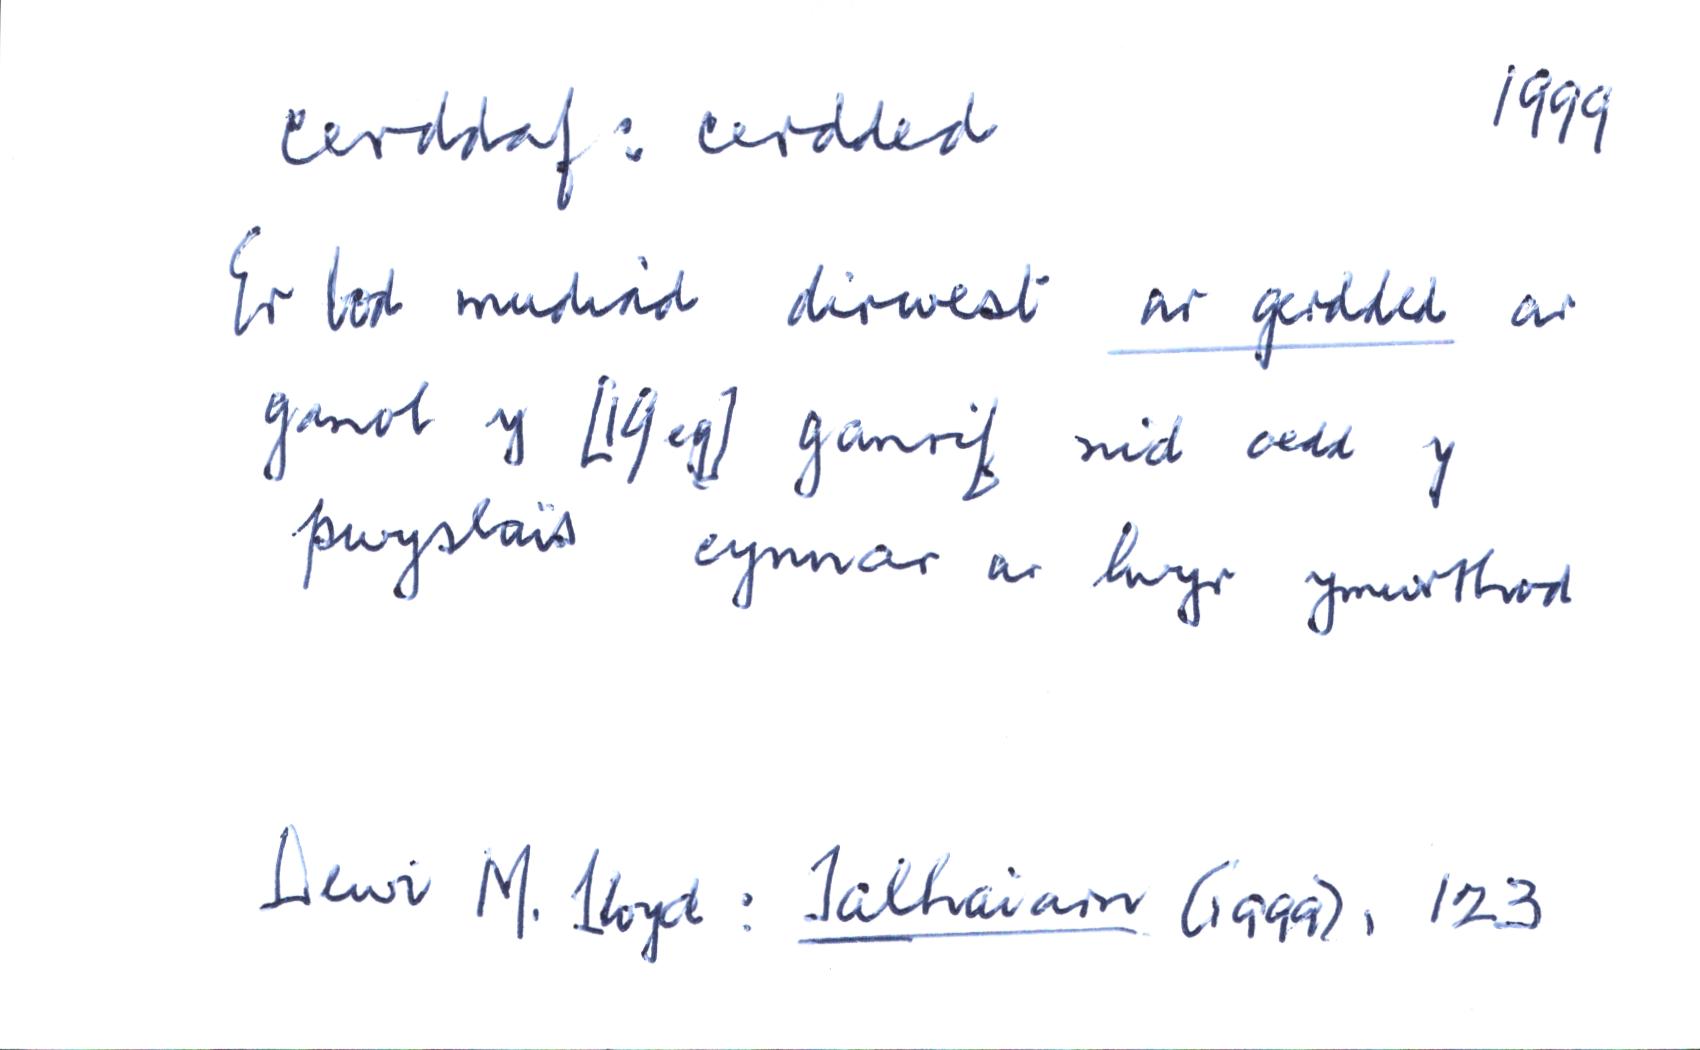 cerddaf : cerdded 1999
Er bod mudiad dirwest ar gerdded ar
ganol y [19eg] ganrif nid oedd y
pwyslais cynnar ar lwyr ymwrthod
Dewi M. Lloyd : Talhaiarn (1999), 123